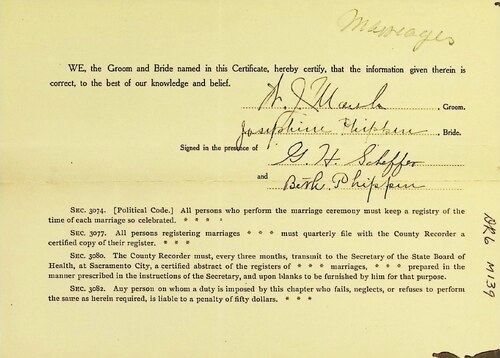 Marriages
WE, the Groom and Bride named in this Certificate, hereby certify, that the information given therein is
correct, to the best of our knowledge and belief.
W. J. Marsh , Groom.
Josephine Phippen , Bride.
Signed in the presence of G. H. Scheffer
and Beth. Phippen
SEC. 3074. [Political Code.] All persons who perform the marriage ceremony must keep a registry of
the time of each marriage so celebrated. * * * *
SEC. 3077. All persons registering marriages * * * must quarterly file with the County Recorder a
certified copy of their register. * * *
SEC. 3080. The County Recorder must, every three months, transmit to the Secretary of the State Board of
Health, at Sacramento City, a certified abstract of the registers of * * * * marriages, * * * * prepared in the
manner prescribed in the instructions of the Secretary, and upon blanks to be furnished by him for that purpose.
SEC. 3082. Any person on whom a duty is imposed by this chapter who fails, neglects, or refuses to perform
the same as herein required, is liable to a penalty of fifty dollars. * * *
M139